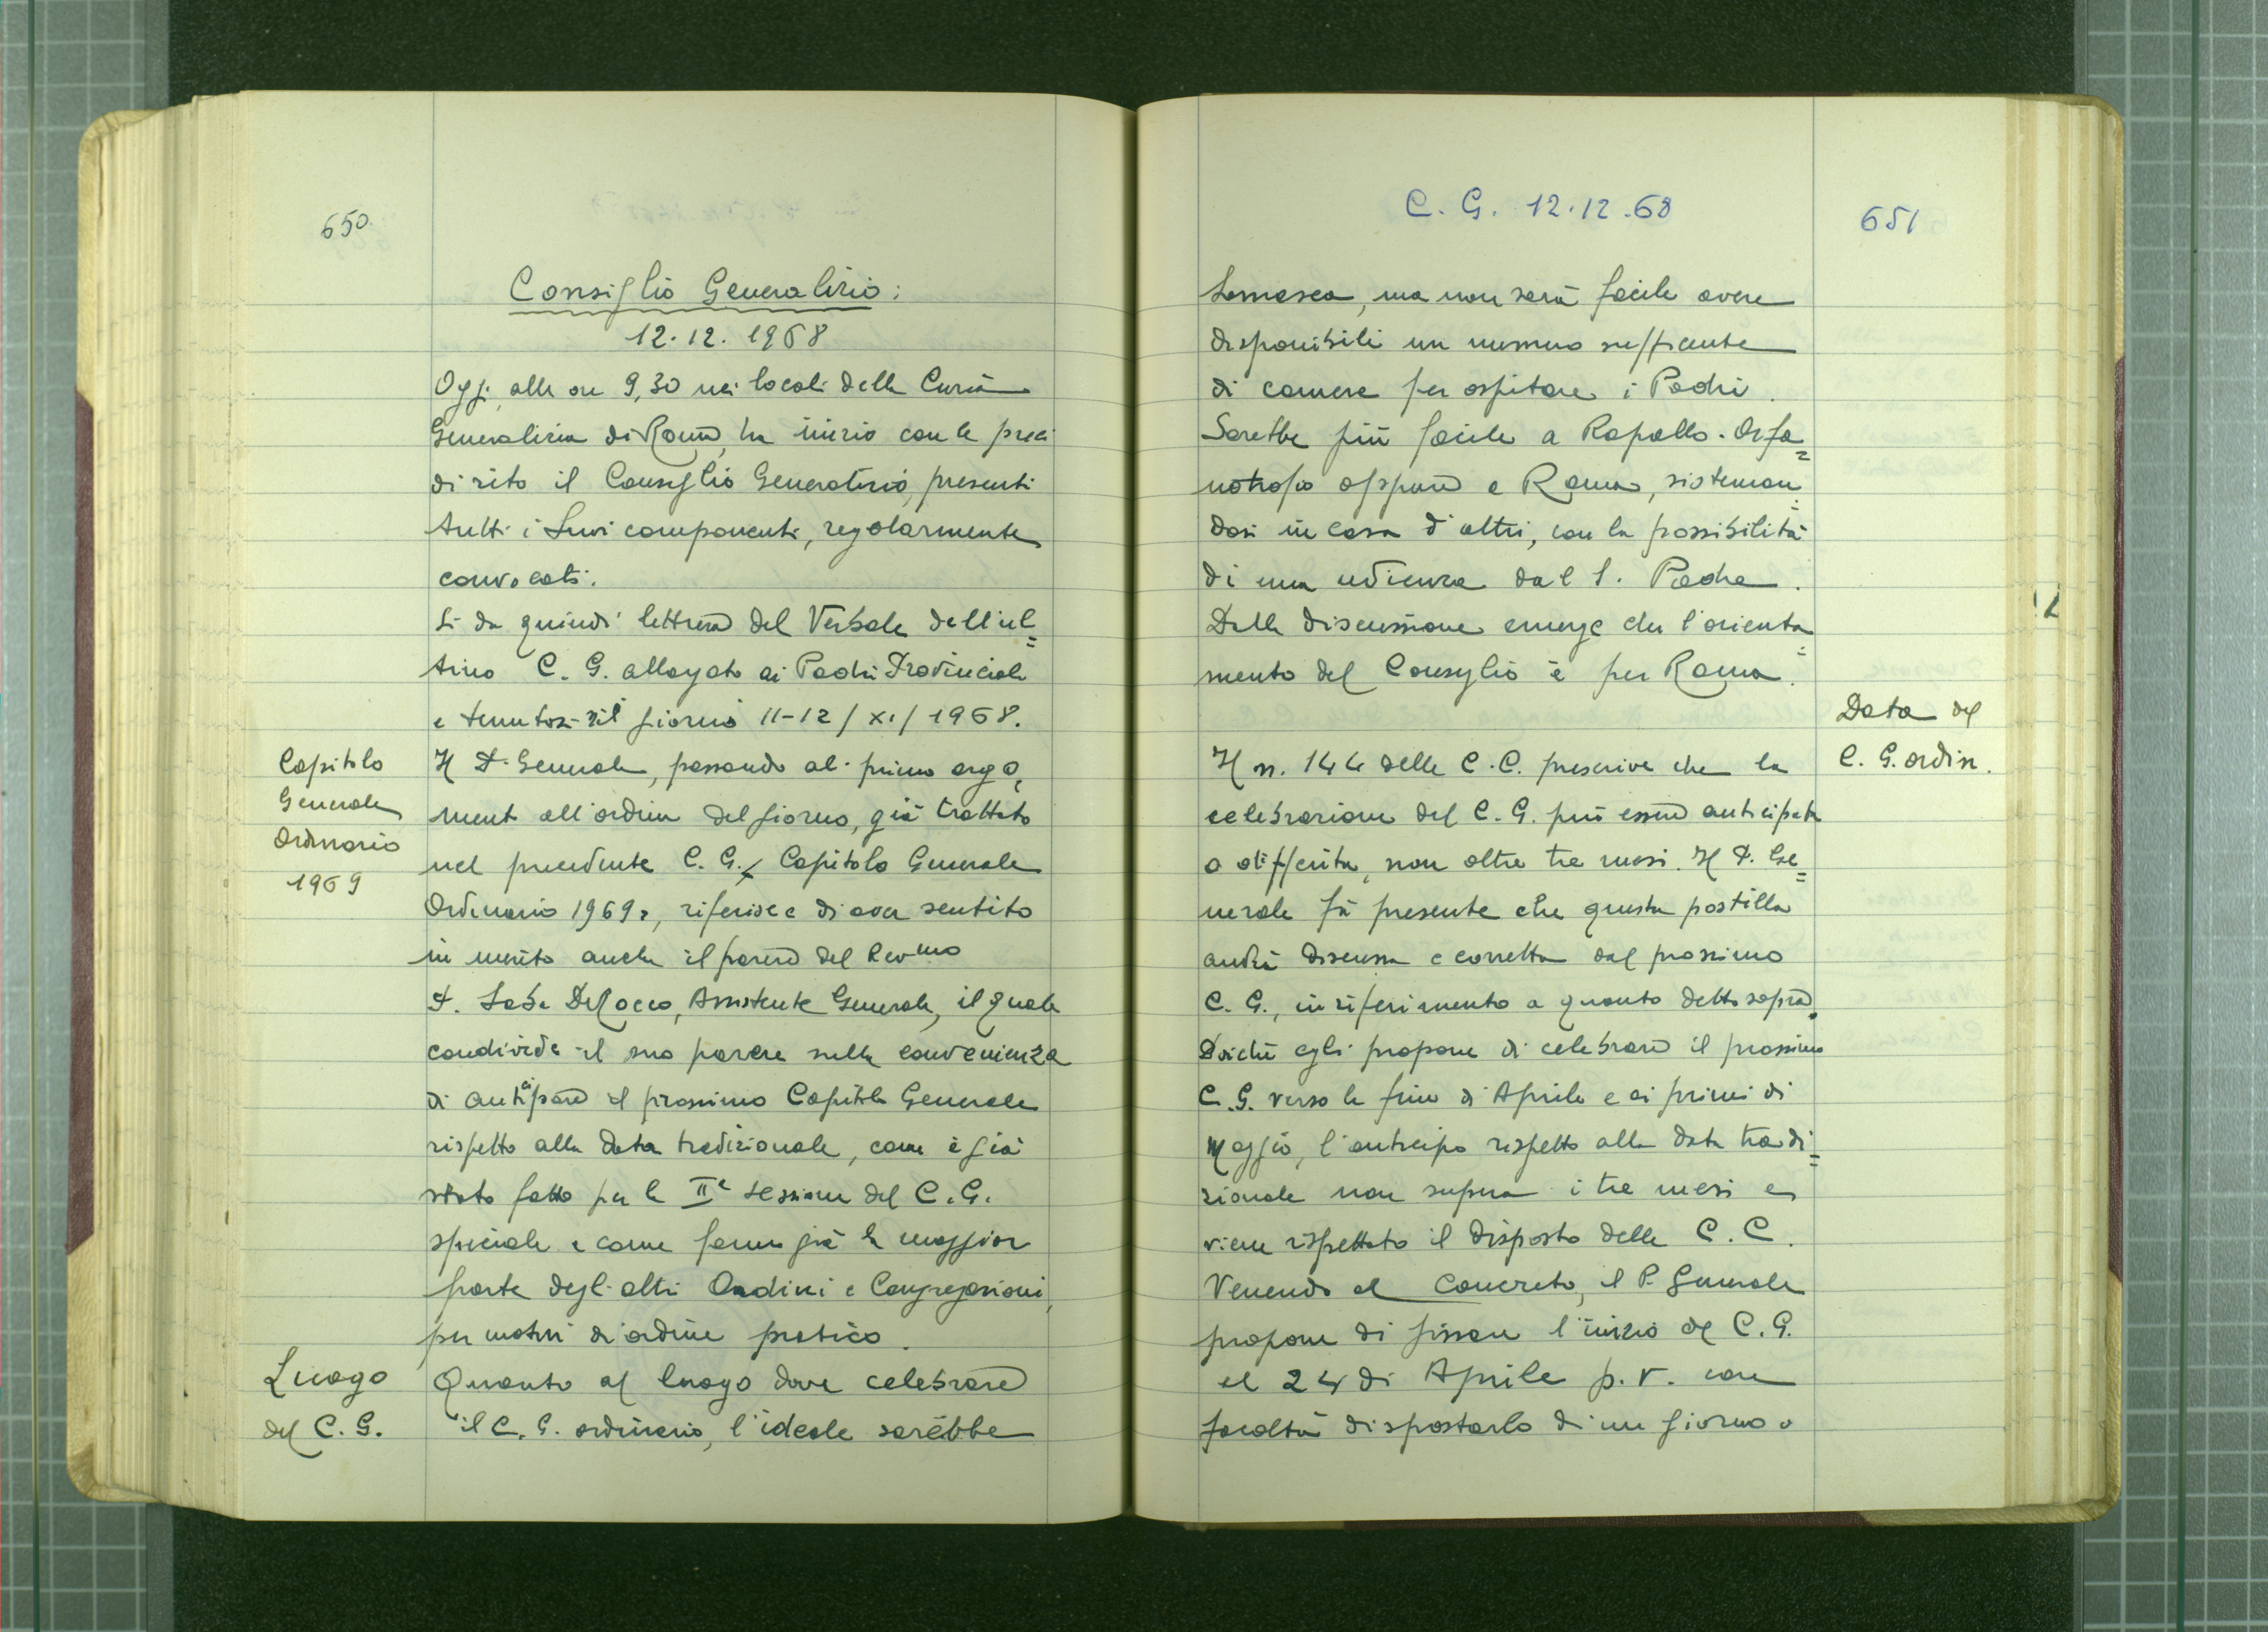 650
Consiglio Generalizio:
12.12.1968
Oggi alle ore 9,30 nei locali della Curia
Generalizia di Roma, ha inizio con le preci
di rito il Consiglio Generalizio, presenti
tutti i suoi componenti, regolarmente
convocati.
Si da quindi lettura del Verbale dell'ul=
timo C. G. allargato ai Padri Provinciali
e tenutosi il giorno 11-12/XI/1968.
Capitolo
Generale
Ordinario
1969
Il P. Generale, passando al primo argo=
mento all'ordine del giorno, già trattato
nel precedente C. G., Capitolo Generale
Ordinario 1969, riferisce di aver sentito
in merito anche il parere del Rev.mo
P. Saba De Rocco, Assistente Generale, il quale
condivide il suo parere sulla convenienza
di anticipare il prossimo Capitolo Generale
rispetto alla data tradizionale, come è già
stato fatto per la IIª sessione del C. G.
speciale e come fanno già la maggior
parte degli altri Ordini e Congregazioni,
per motivi di ordine pratico.
Luogo
del C. G.
Quanto al luogo dove celebrare
il C. G. ordinario, l'ideale sarebbe
C. G. 12.12.68
651
Somasca, ma non sarà facile avere
disponibili un numero sufficiente
di camere per ospitare i Padri.
Sarebbe più facile a Rapallo-Orfa=
notrofio oppure a Roma, sisteman=
dosi in casa d'altri, con la possibilità
di una udienza dal S. Padre.
Dalla discussione emerge che l'orienta=
mento del Consiglio è per Roma.
Data del
C. G. ordin.
Il n. 144 delle C. C. prescrive che la
celebrazione del C. G. può essere anticipata
o differita, non oltre tre mesi. Il P. Ge=
nerale fà presente che questa postilla
andrà discussa e corretta dal prossimo
C. G., in riferimento a quanto detto sopra.
Poichè egli propone di celebrare il prossimo
C. G. verso la fine di Aprile e ai primi di
Maggio, l'anticipo rispetto alla data tradi=
zionale non supera i tre mesi e
viene rispettato il disposto delle C. C.
Venendo al concreto, il P. Generale
propone di fissare l'inizio del C. G.
al 24 di Aprile p. v. con
facoltà di spostarlo di un giorno o